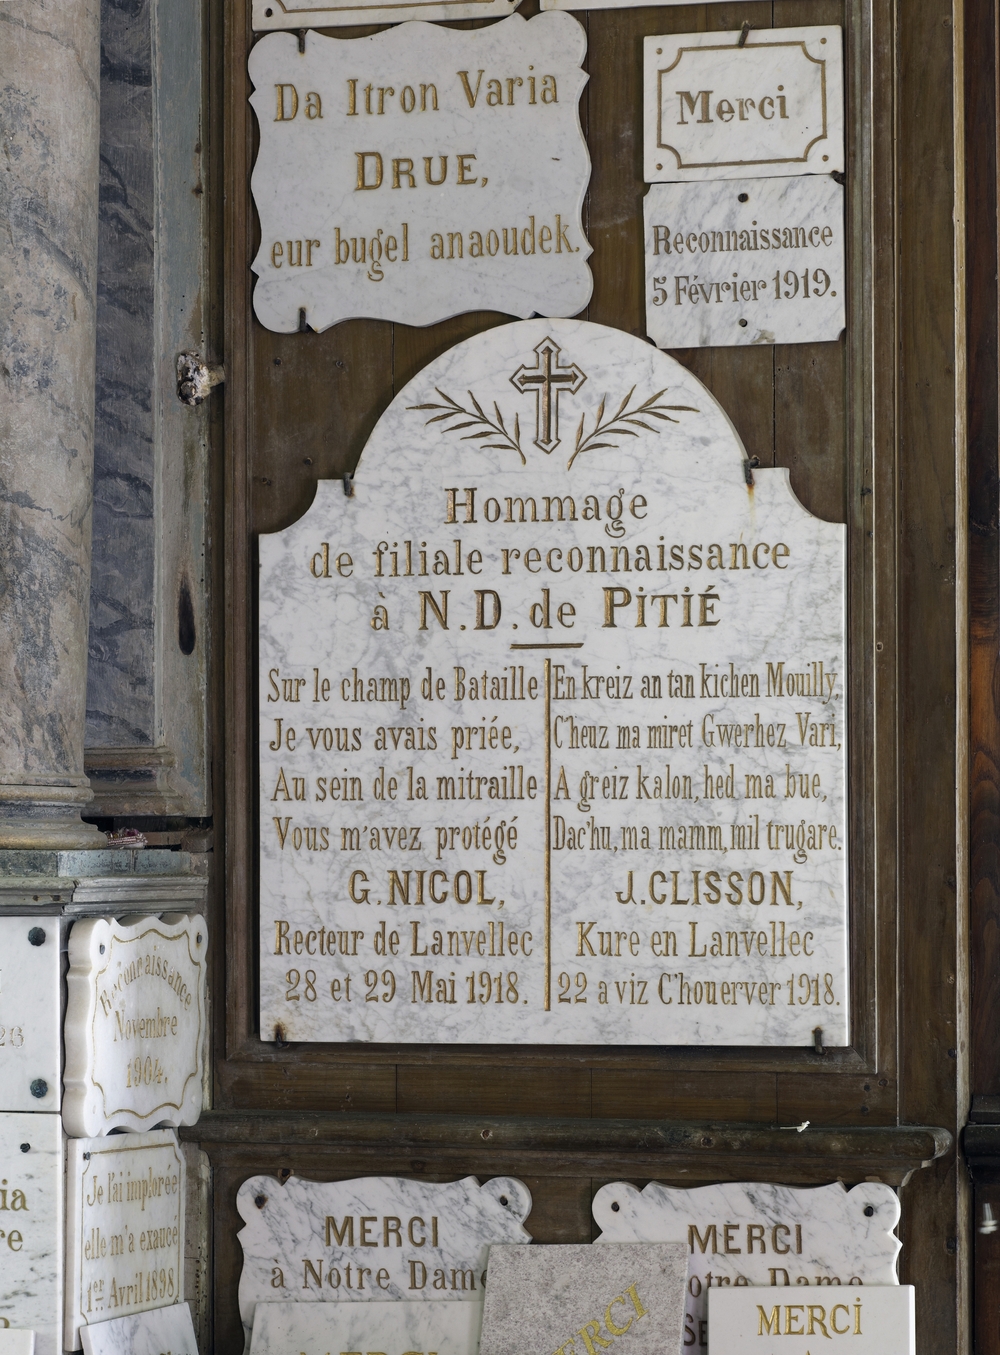 Da Itron Varia
DRUE,
eur bugel anaoudek.
Merci
Reconnaissance
5 Février 1919.
Hommage
de filiale reconnaissance
à N.D. de PITIÉ
Sur le champ de Bataille
Je vous avais priée,
Au sein de la mitraille
Vous m'avez protégé
G. NICOL,
Recteur de Lanvellec
28 et 29 Mai 1918.
En kreiz an tan kichen Mouilly,
C'heuz ma miret Gwerhez Vari,
A greiz kalon, hed ma bue,
Dac'hu, ma mamm, mil trugare.
J. CLISSON,
Kure en Lanvellec
22 a viz C'houerver 1918.
Reconnaissance
Novembre
1904.
Je l'ai implorée
elle m'a exaucé
1er Avril 1898
MERCI
à Notre Dame
MERCI
otre Dame
MERCI
MERCI